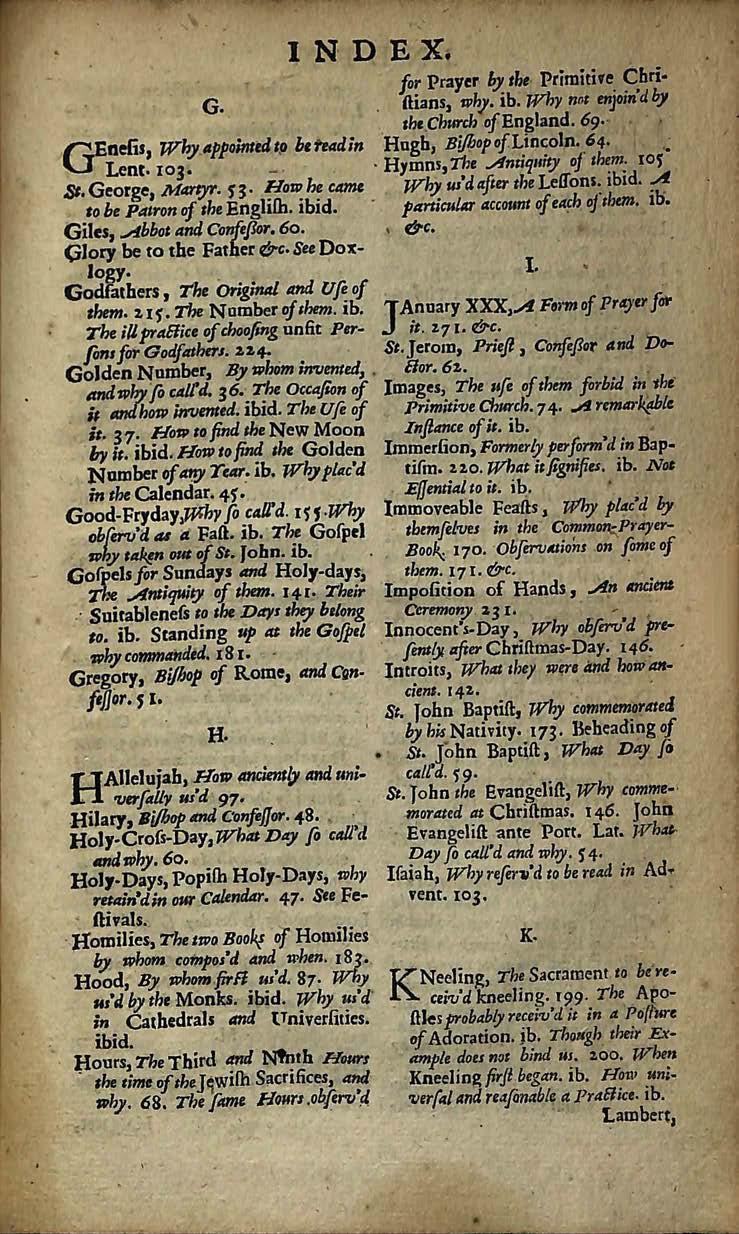 INDEX.
G.
GEneſis, Why appointed to be read in
Lent. 103.
St. George, Martyr. 53. How he came
to be Patron of the Engliſh. ibid.
Giles, Abbot and Confeſſor. 60.
Glory be to the Father &c. See Dox-
logy.
Godfathers, The Original and Uſe of
them. 215. The Number of them. ib.
The ill practice of chooſing unfit Per-
ſons for Godfathers. 224.
Golden Number, By whom invented,
and why ſo call'd. 36. The Occaſion of
it and how invented. ibid. The Uſe of
it. 37. How to find the New Moon
by it. ibid. How to find the Golden
Number of any Year. ib. Why plac'd
in the Calendar. 45.
Good-Fryday, Why ſo call'd. 155. Why
obſerv'd as a Faſt. ib. The Goſpel
why taken out of St. John. ib.
Goſpels for Sundays and Holy-days,
The Antiquity of them. 141. Their
Suitableneſs to the Days they belong
to. ib. Standing up at the Goſpel
why commanded. 181.
Gregory, Biſhop of Rome, and Con-
feſſor. 51.
H.
HAllelujah, How anciently and uni-
verſally us'd 97.
Hilary, Biſhop and Confeſſor. 48.
Holy-Croſs-Day, What Day ſo call'd
and why. 60.
Holy-Days, Popiſh Holy-Days, why
retain'd in our Calendar. 47. See Fe-
ſtivals.
Homilies, The two Books of Homilies
by whom compos'd and when. 183.
Hood, By whom firſt us'd. 87. Why
us'd by the Monks. ibid. Why us'd
in Cathedrals and Univerſities.
ibid.
Hours, The Third and Ninth Hours
the time of the Jewiſh Sacrifices, and
why. 68. The ſame Hours obſerv'd
for Prayer by the Primitive Chri-
ſtians, why. ib. Why not enjoin'd by
the Church of England. 69.
Hugh, Biſhop of Lincoln. 64.
Hymns, The Antiquity of them. 105
Why us'd after the Leſſons. ibid. A
particular account of each of them. ib.
&c.
I.
JAnuary XXX, A Form of Prayer for
it. 271. &c.
St. Jerom, Prieſt, Confeſſor and Do-
ctor. 62.
Images, The uſe of them forbid in the
Primitive Church. 74. A remarkable
Inſtance of it. ib.
Immerſion, Formerly perform'd in Bap-
tiſm. 220. What it ſignifies. ib. Not
Eſſential to it. ib.
Immoveable Feaſts, Why plac'd by
themſelves in the Common-Prayer-
Book. 170. Obſervations on ſome of
them. 171. &c.
Impoſition of Hands, An ancient
Ceremony 231.
Innocent's-Day, Why obſerv'd pre-
ſently after Chriſtmas-Day. 146.
Introits, What they were and how an-
cient. 142.
St. John Baptiſt, Why commemorated
by his Nativity. 173. Beheading of
St. John Baptiſt, What Day ſo
call'd. 59.
St. John the Evangeliſt, Why comme-
morated at Chriſtmas. 146. John
Evangeliſt ante Port. Lat. What
Day ſo call'd and why. 54.
Iſaiah, Why reſerv'd to be read in Ad-
vent. 103.
K.
KNeeling, The Sacrament to be re-
ceiv'd kneeling. 199. The Apo-
ſtles probably receiv'd it in a Poſture
of Adoration. ib. Though their Ex-
ample does not bind us. 200. When
Kneeling firſt began. ib. How uni-
verſal and reaſonable a Practice. ib.
Lambert,